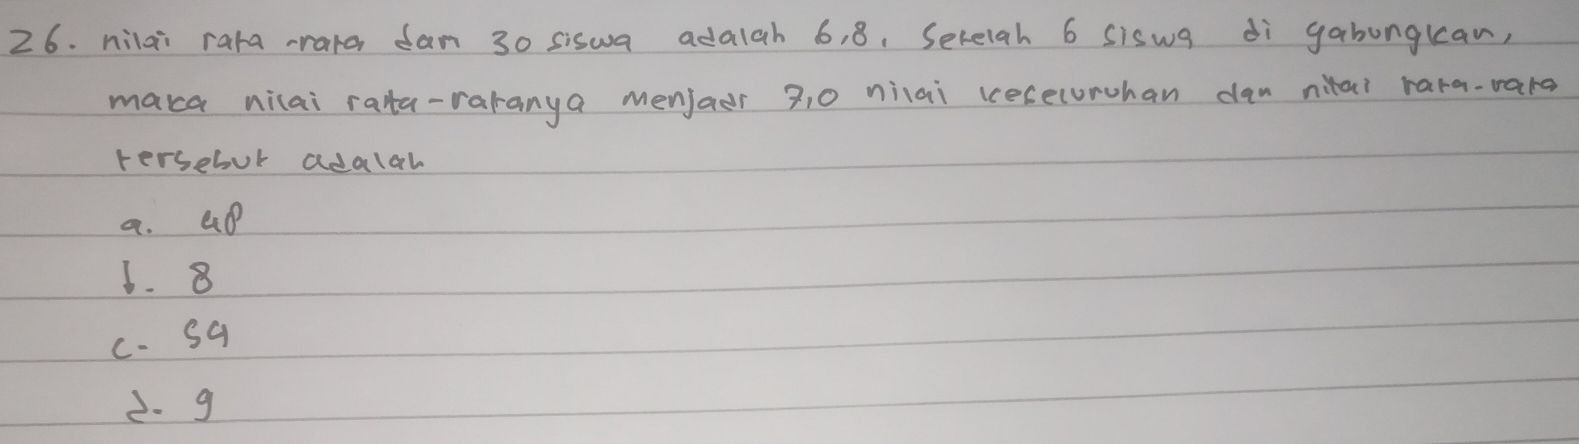 26. nilai rata-rata dari 30 siswa adalah 6,8. Setelah 6 siswa di gabungkan,
maka nilai rata-ratanya menjadi 7,0 nilai keseluruhan dan nilai rata-rata
tersebut adalah
a. 48
b. 8
c. 54
d. 9